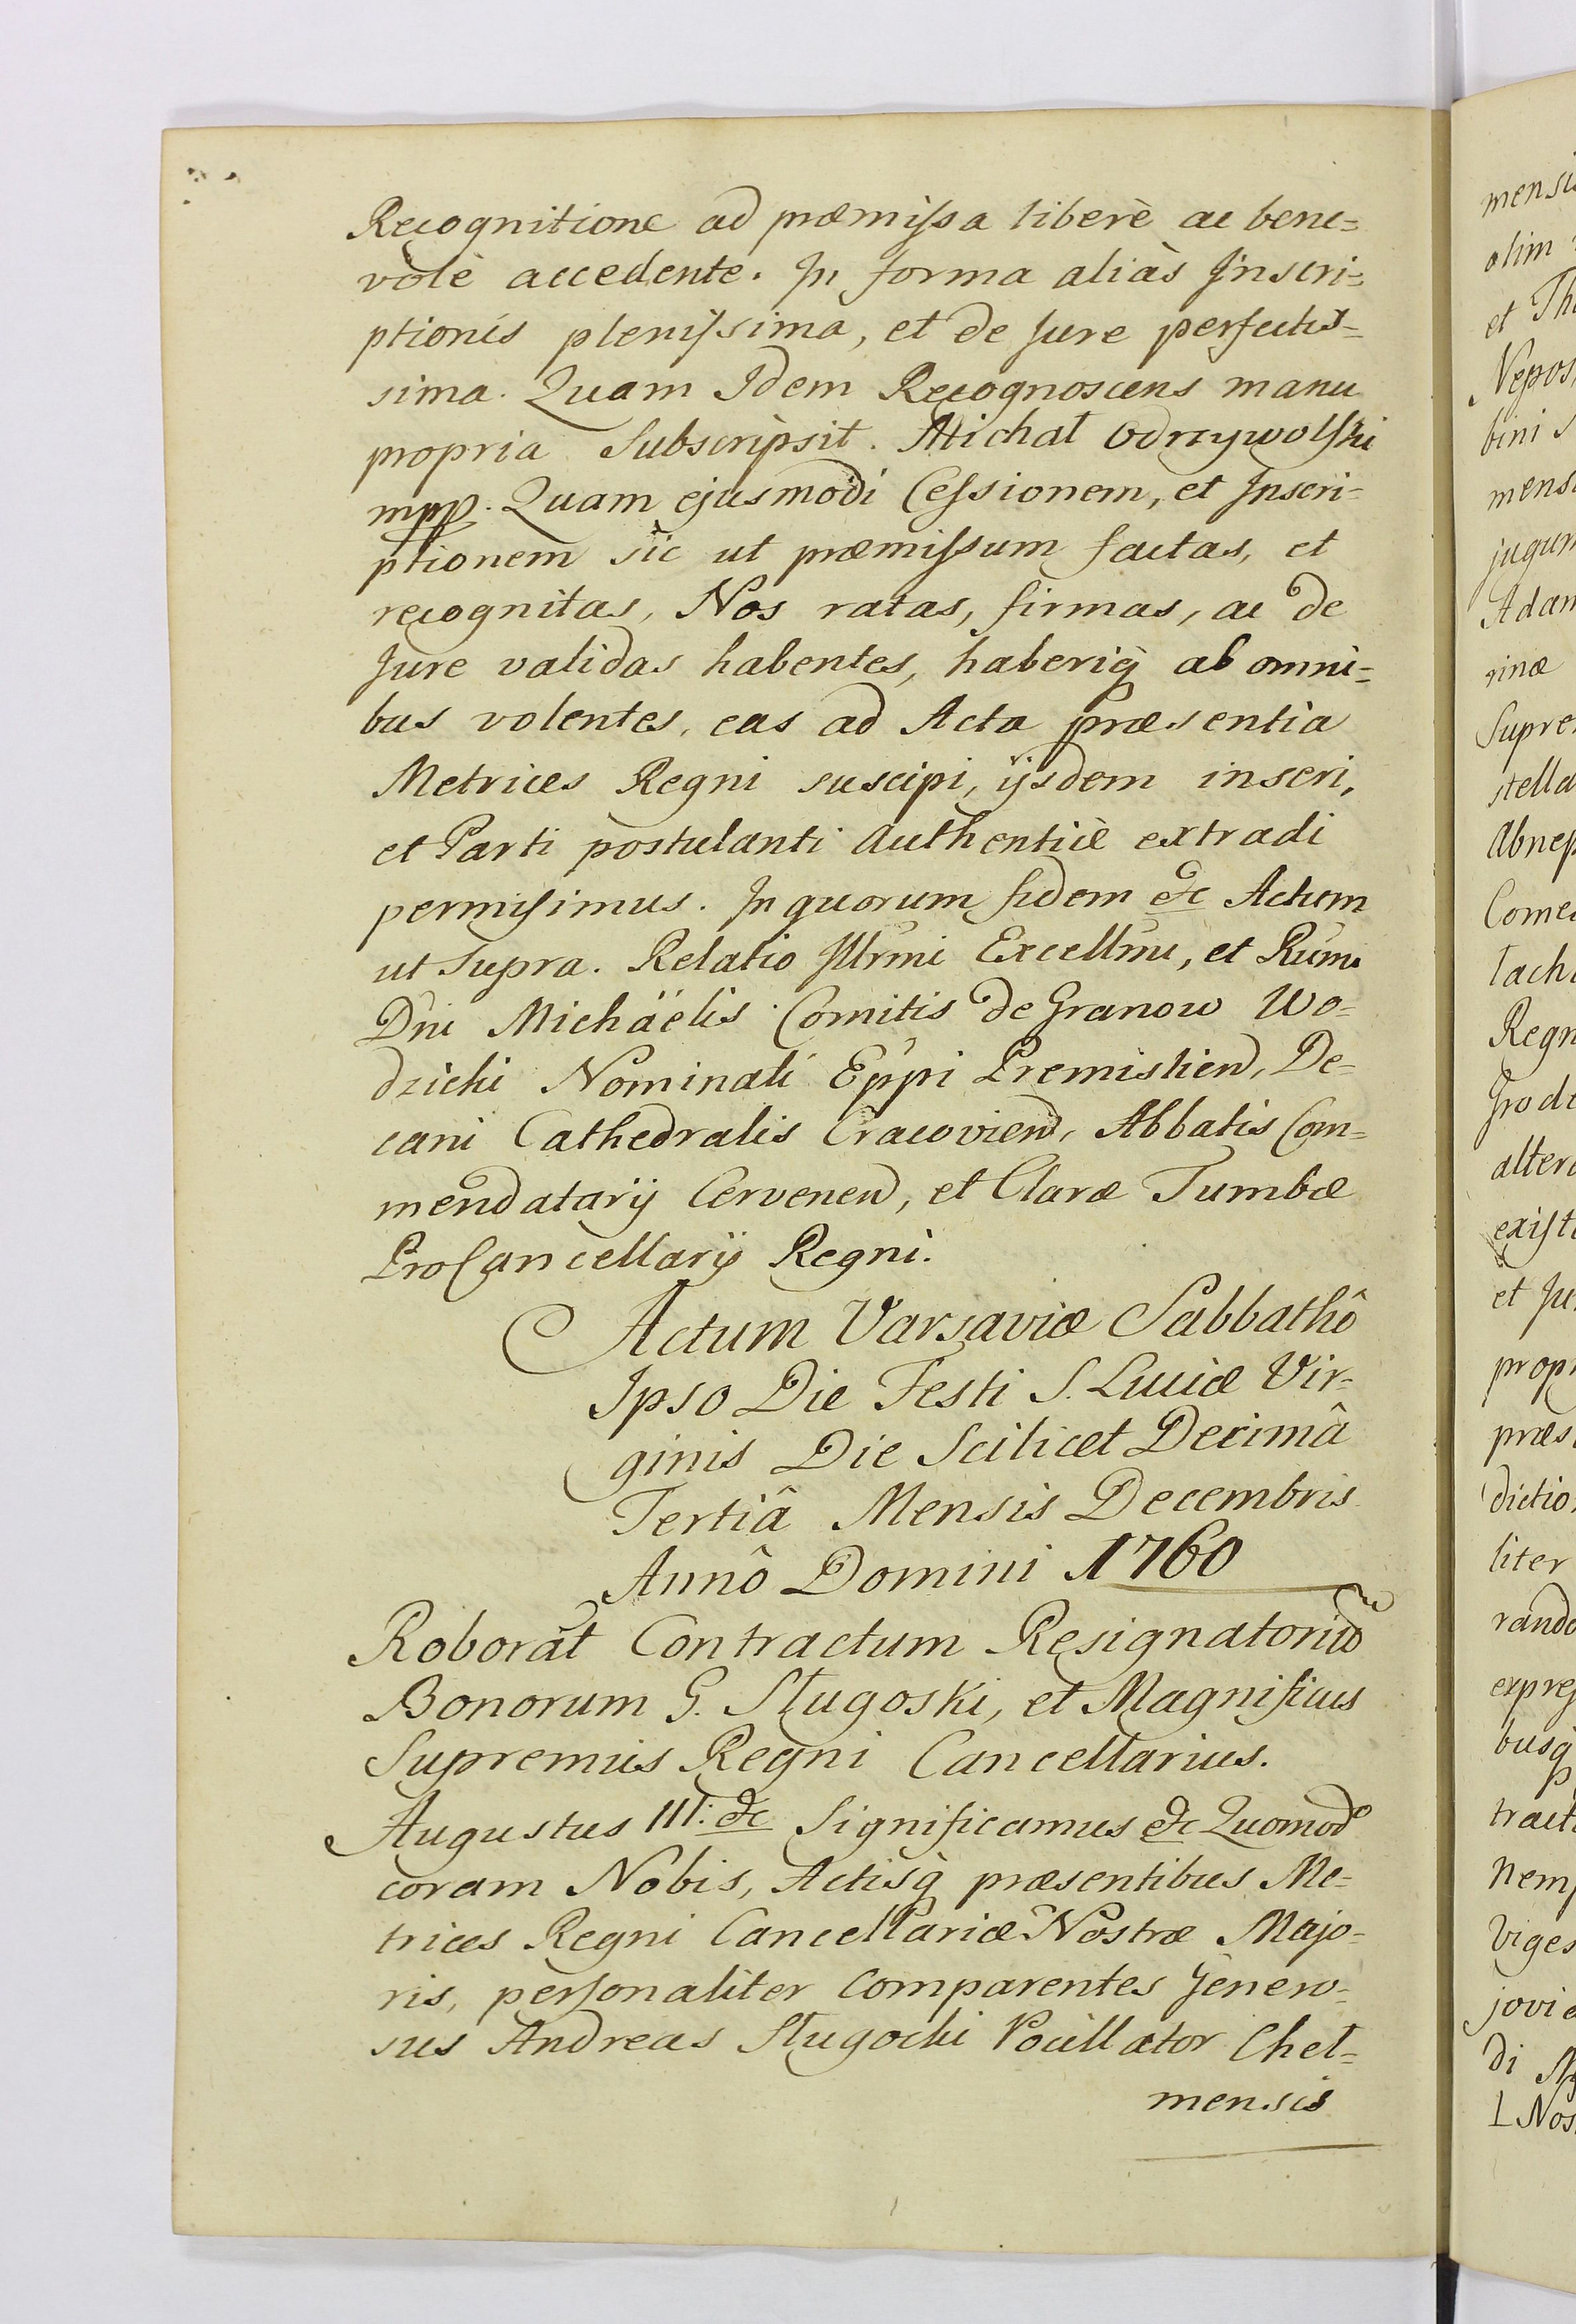 Recognitione ad præmissa liberè ac bene=
volè accedente. In forma aliàs Inscri=
ptionis plenissima, et de Jure perfectis=
sima. Quam Idem Recognoscens manu
propria Subscripsit. Michał Odrzywolski
mpp. Quam ejusmodi Cessionem, et Inscri=
ptionem sic ut præmissum factas, et
recognitas, Nos ratas, firmas, ac de
Jure validas habentes, haberiq̃ ab omni=
bus volentes, eas ad Acta præsentia
Metrices Regni suscipi, ijsdem inseri,
et Parti postulanti Authenticè extradi
permisimus. In quorum fidem &c Actum
ut supra. Relatio Illrmi Excellmi, et Rūmi
Dñi Michäelis Comitis de Granow Wo=
dzicki Nominati Eppi Premislien, De=
cani Cathedralis Cracovien, Abbatis Com=
mendatarij Cervenen, et Claræ Tumbæ
ProCancellarij Regni.
Actum Varsaviæ Sabbathô
Ipso Die Festi S. Luciæ Vir=
ginis Die Scilicet Decimâ
Tertiâ Mensis Decembris
Annô Domini 1760
Roborat Contractum Resignatoriũ
Bonorum G. Sługoski, et Magnificus
Supremus Regni Cancellarius.
Augustus III: &c Significamus &c Quomodo
coram Nobis, Actisq̃ præsentibus Me=
trices Regni Cancellariæ Nostræ Majo=
ris, personaliter Comparentes Genero=
sus Andreas Sługocki Pocillator Cheł=
mensis
mensis
olim
et Th
Nepos
bini s
mens
jugum
Adam
rinæ
Supre
stella
Abnep
Come
tach
Regn
Grod
alter
exist
et Ju
prop
præs
dictio
liter
rando
expres
busq̃
tract
nemp
Viges
jovie
di
L Nos